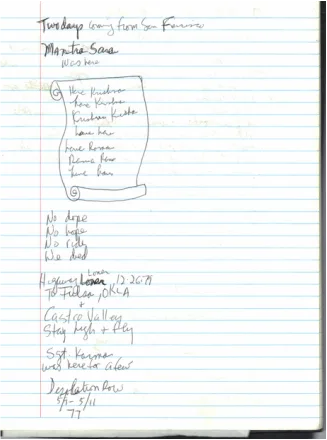 Two days coming from San Francisco
Mantra Sara
was here
Hare Krishna
Hare Krishna
Krishna Krishna
Hare Hare
Hare Rama
Rama Rama
Hare Hare
No dope
No hope
No ride
We died
Highway Loner 12-26-79
To Tulsa, OKLA
+
Castro Valley
Stay high + fly
Sgt.
was here for a few
Desolation Row
5/1-5/11
77